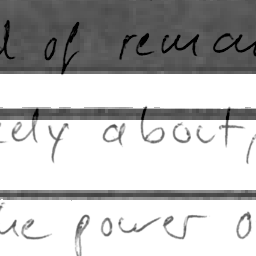 of reman
ely about,
he power o